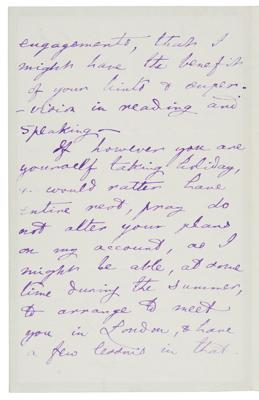 engagements, that I
might have the benefit
of your hints & super-
-vision in reading and
speaking.
If however you are
yourself taking holiday,
& would rather have
entire rest, pray do
not alter your plans
on my account, as I
might be able, at some
time during the summer,
to arrange to meet
you in London, & have
a few lessons in that